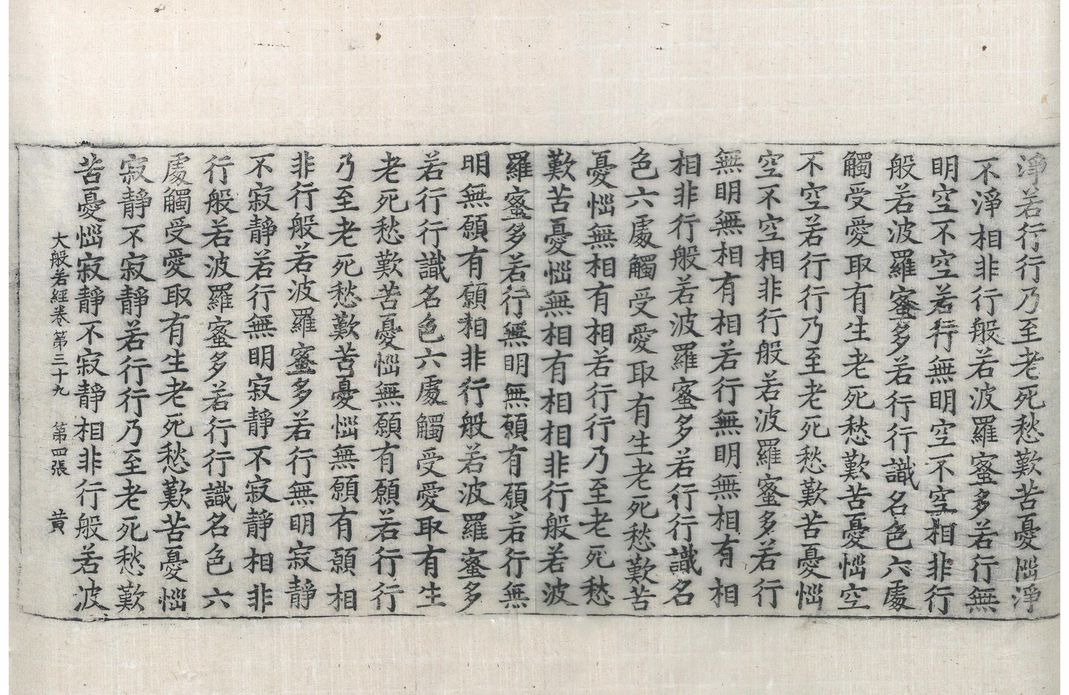 淨若行行乃至老死愁歎苦憂惱淨
不淨相非行般若波羅蜜多若行無
明空不空若行無明空不空相非行
般若波羅蜜多若行行識名色六處
觸受愛取有生老死愁歎苦憂惱空
不空若行行乃至老死愁歎苦憂惱
空不空相非行般若波羅蜜多若行
無明無相有相若行無明無相有相
相非行般若波羅蜜多若行行識名
色六處觸受愛取有生老死愁歎苦
憂惱無相有相若行行乃至老死愁
歎苦憂惱無相有相相非行般若波
羅蜜多若行無明無願有願若行無
明無願有願相非行般若波羅蜜多
若行行識名色六處觸受愛取有生
老死愁歎苦憂惱無願有願若行行
乃至老死愁歎苦憂惱無願有願相
非行般若波羅蜜多若行無明寂靜
不寂靜若行無明寂靜不寂靜相非
行般若波羅蜜多若行行識名色六
處觸受愛取有生老死愁歎苦憂惱
寂靜不寂靜若行行乃至老死愁歎
苦憂惱寂靜不寂靜相非行般若波
大般若經卷第三十九 第四張 黃